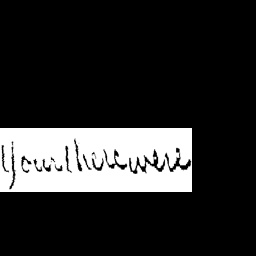 Your there were